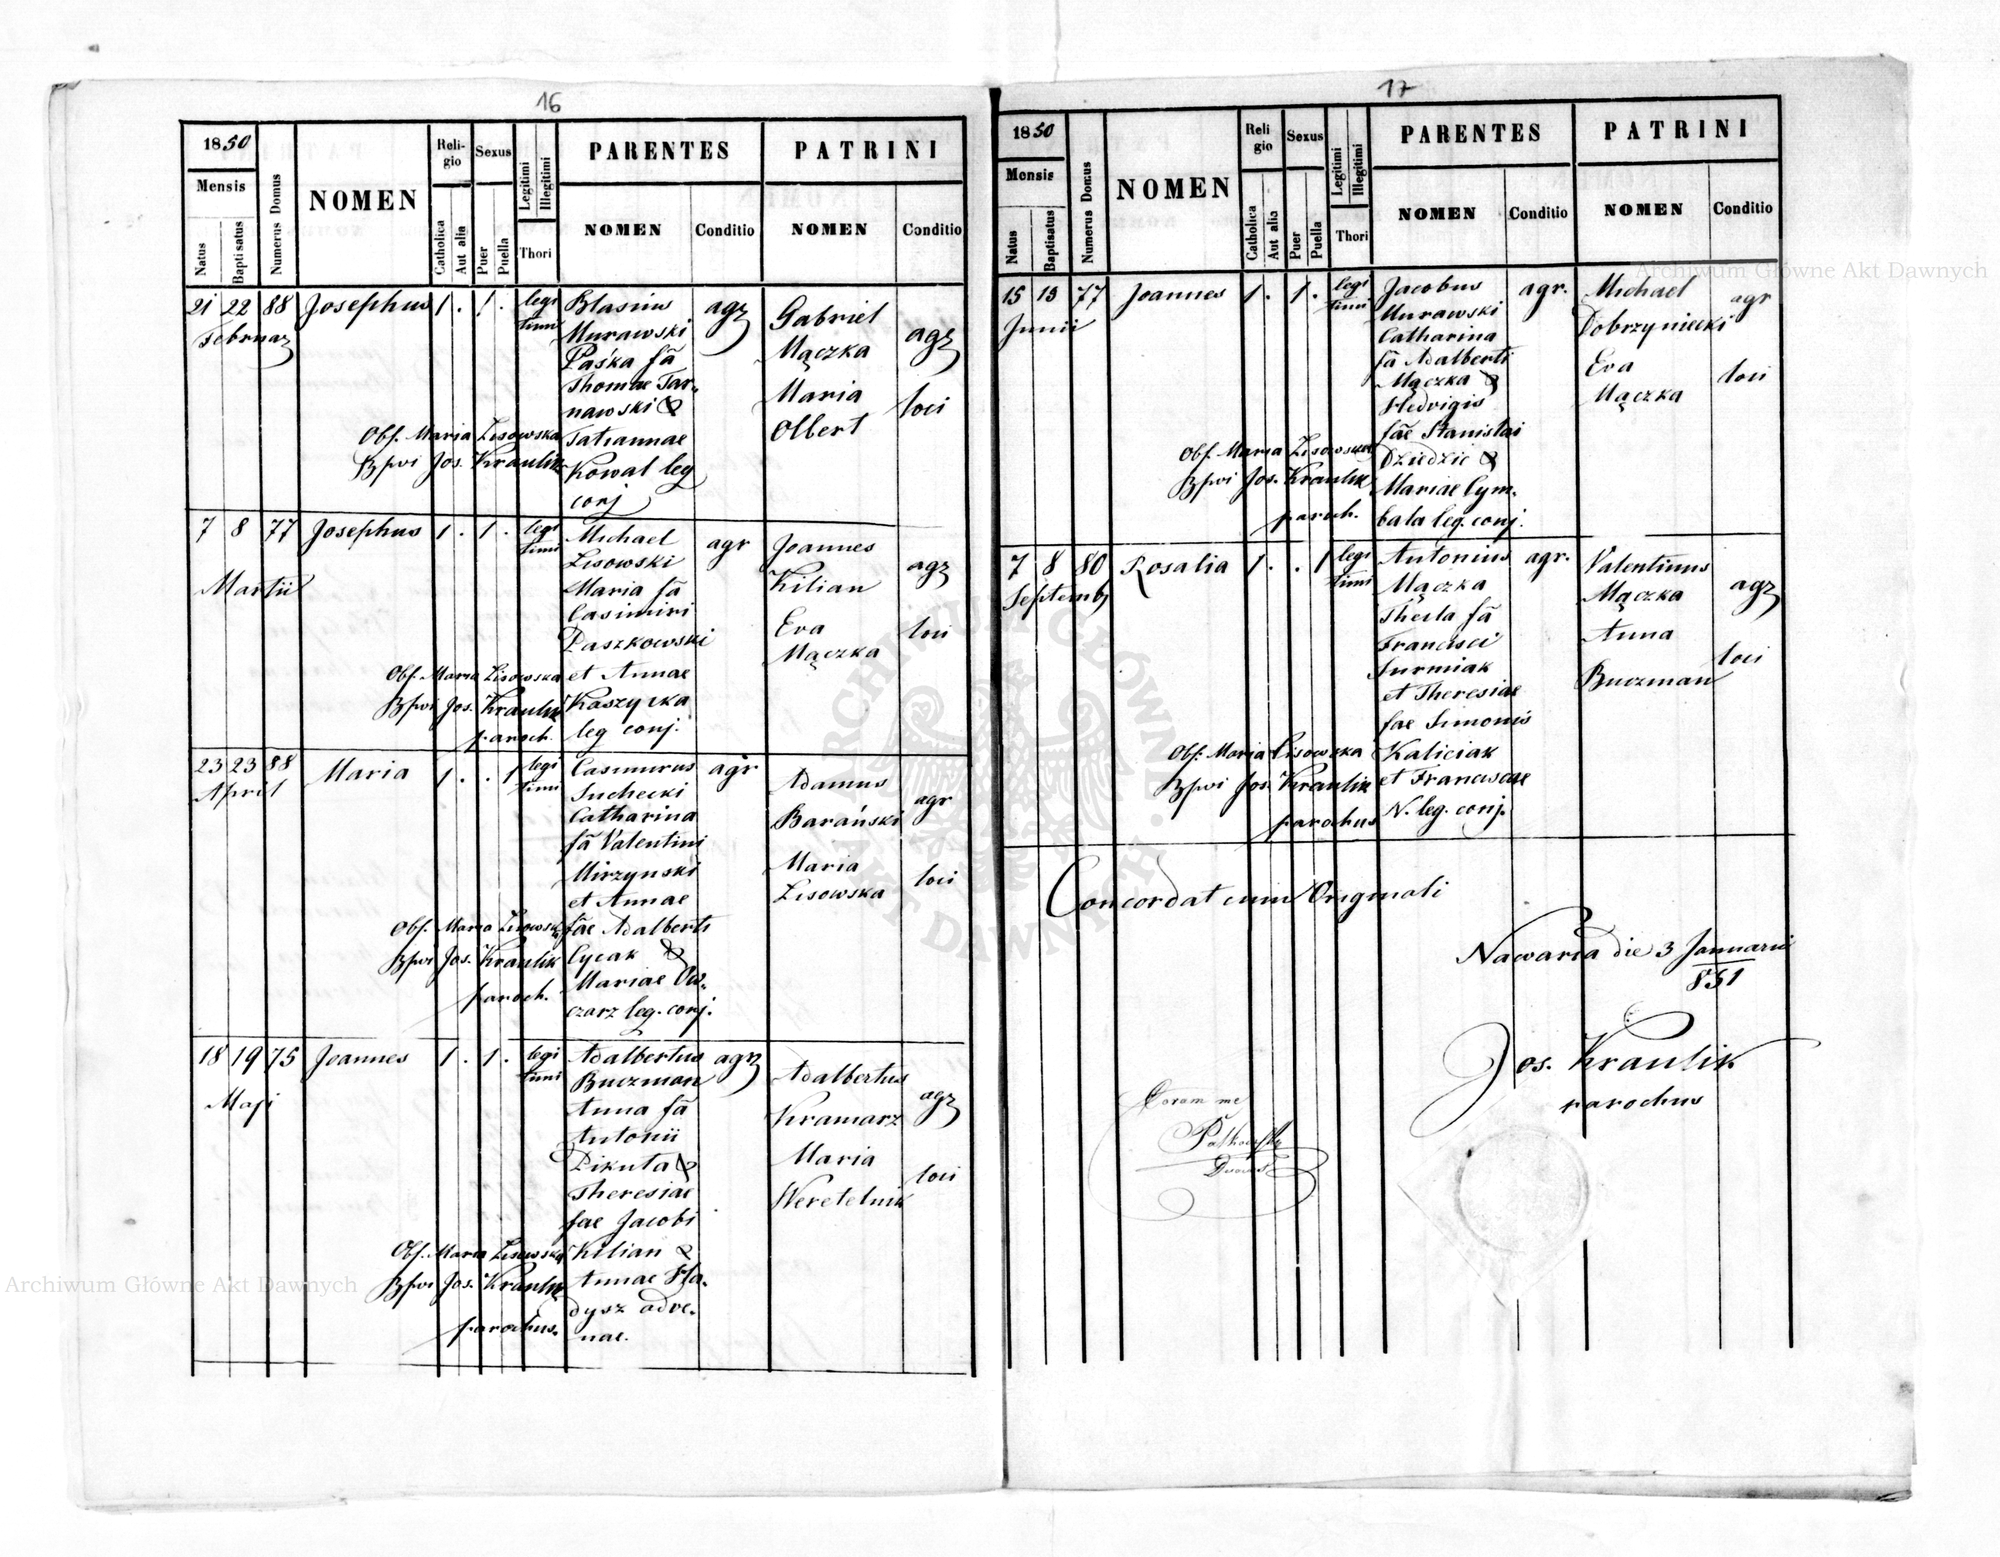 16
1850
Mensis
Natus
Baptisatus
Numerus Domus
NOMEN
Religio
Catholica
Aut alia
Sexus
Puer
Puella
Legitimi
Illegitimi
Thori
PARENTES
NOMEN
Conditio
PATRINI
NOMEN
Conditio
21 22 88 Josephus 1 . 1 . legi
timi
Februar
Blasius
Murawski
Paśka fa
Thomae Tar-
nawski &
Tatiannae
Kowal leg
conj
agr
Gabriel
Mączka
Maria
Olbert
agr
loci
Obs. Maria Lisowska
Bpvi Jos. Kraulik
7 8 77 Josephus 1 . 1 . legi
timi
Martii
Michael
Lisowski
Maria fa
Casimiri
Paszkowski
et Annae
Kaszycka
leg conj.
agr
Joannes
Kilian
Eva
Mączka
agr
loci
Obs. Maria Lisowska
Bpvi Jos. Kraulik
paroch.
23 23 88 Maria 1 . . 1 legi
timi
April
Casimirus
Suchecki
Catharina
fa Valentini
Mirzynski
et Annae
fae Adalberti
Cycak &
Mariae Ow-
czarz leg. conj.
agr
Adamus
Barański
Maria
Lisowska
agr
loci
Obs. Maria Lisowska
Bpvi Jos. Kraulik
paroch.
18 19 75 Joannes 1 . 1 . legi
timi
Maji
Adalbertus
Buczman
Anna fa
Antonii
Pikuta &
Theresiae
fae Jacobi
Kilian &
Annae Hla-
dysz adve-
nae.
agr
Adalbertus
Kramarz
Maria
Weretelnik
agr
loci
Obs. Maria Lisowska
Bpvi Jos. Kraulik
parochus.
17
1850
Mensis
Natus
Baptisatus
Numerus Domus
NOMEN
Religio
Catholica
Aut alia
Sexus
Puer
Puella
Legitimi
Illegitimi
Thori
PARENTES
NOMEN
Conditio
PATRINI
NOMEN
Conditio
15 15 77 Joannes 1 . 1 . legi
timi
Junii
Jacobus
Murawski
Catharina
fa Adalberti
Mączka &
Hedvigis
fae Stanislai
Dziedzic &
Mariae Cym-
bala leg. conj.
agr.
Michael
Dobrzyniecki
Eva
Mączka
agr
loci
Obs. Maria Lisowska
Bpvi Jos. Kraulik
paroch.
7 8 80 Rosalia 1 . . 1 legi
timi
Septemb
Antonius
Mączka
Thecla fa
Francisci
Surmiak
et Theresiae
fae Simonis
Kaliciak
et Franciscae
N. leg. conj.
agr.
Valentinus
Mączka
Anna
Buczman
agr
loci
Obs. Maria Lisowska
Bpvi Jos. Kraulik
parochus
Concordat cum Originali
Nawaria die 3 Januarii
851
Jos. Kraulik
parochus
Coram me
Archiwum Główne Akt Dawnych
Archiwum Główne Akt Dawnych
ARCHIWUM GŁÓWNE AKT DAWNYCH